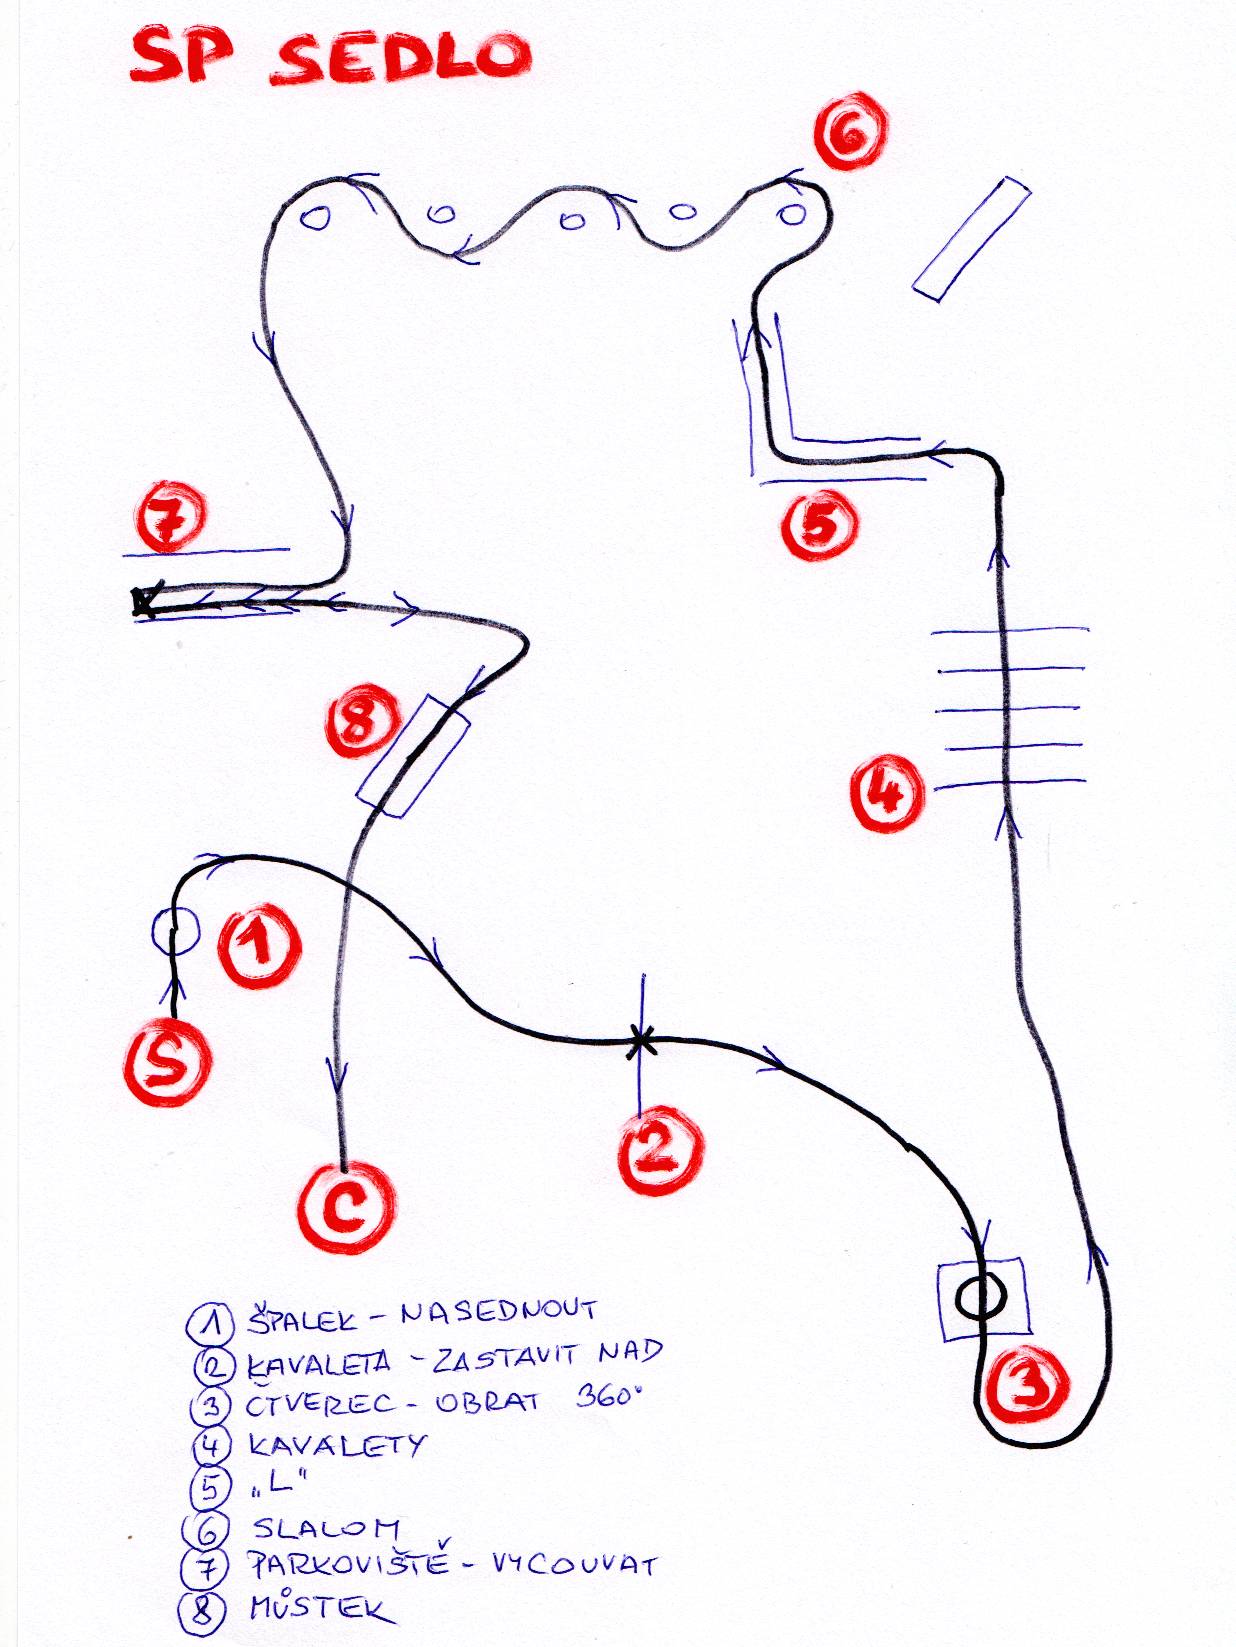 SP SEDLO
6
7
5
8
4
1
S
2
C
3
1 ŠPALEK - NASEDNOUT
2 KAVALETA - ZASTAVIT NAD
3 ČTVEREC - OBRAT 360°
4 KAVALETY
5 „L"
6 SLALOM
7 PARKOVIŠTĚ - VYCOUVAT
8 MŮSTEK